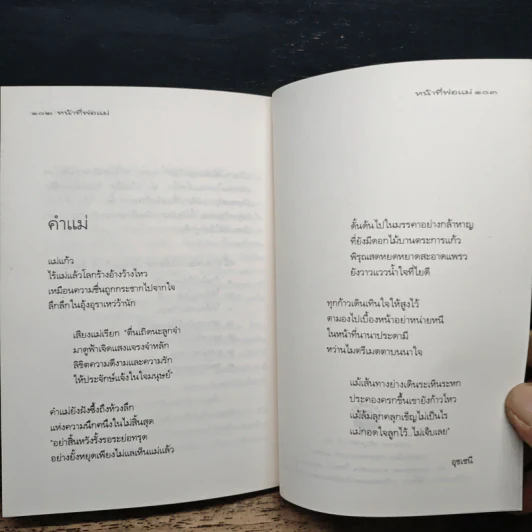 ๑๐๒ หน้าที่พ่อแม่
คำแม่
แม่แก้ว
ไร้แม่แล้วโลกร้างอ้างว้างไหว
เหมือนความชื่นถูกกระชากไปจากใจ
ลึกลึกในอุ้งอุราเหว่ว้านัก
เสียงแม่เรียก "ตื่นเถิดนะลูกจ๋า
มาดูฟ้าเจิดแสงแจรงจำหลัก
ลิขิตความดีงามและความรัก
ให้ประจักษ์แจ้งในใจมนุษย์"
คำแม่ยังฝังซึ้งถึงห้วงลึก
แห่งความนึกคนึงในไม่สิ้นสุด
"อย่าสิ้นหวังรั้งรอระย่อทรุด
อย่างยั้งหยุดเพียงไม่แลเห็นแม่แล้ว
หน้าที่พ่อแม่ ๑๐๓
ดั้นด้นไปในมรรคาอย่างกล้าหาญ
ที่ยังมีดอกไม้บานตระการแก้ว
พิรุณสดหยดหยาดสะอาดแพรว
ยังวาวแววน้ำใจที่ไยดี
ทุกก้าวเดินเทินใจให้สูงไว้
ตามองไปเบื้องหน้าอย่าหน่ายหนี
ในหน้าที่นานาประดามี
หว่านไมตรีเมตตาบนนาใจ
แม้เส้นทางย่างเดินระเหินระหก
ประคองครกขึ้นเขายังก้าวไหว
แม้ล้มลุกคลุกเชิญไม่เป็นไร
แม่กอดใจลูกไว้..ไม่เจ็บเลย"
อุชเชนี